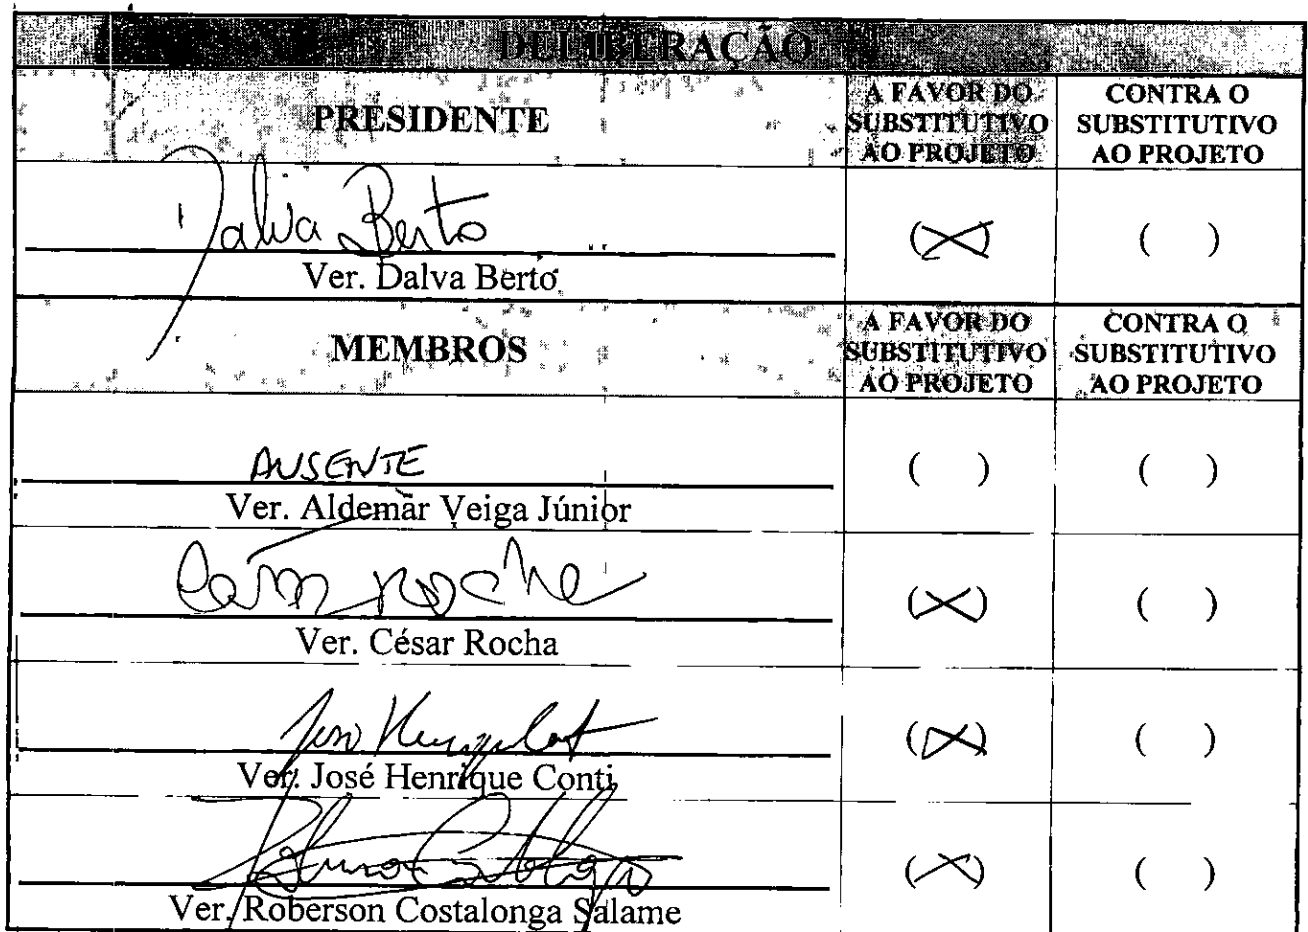 DELIBERAÇÃO
PRESIDENTE
A FAVOR DO
SUBSTITUTIVO
AO PROJETO
CONTRA O
SUBSTITUTIVO
AO PROJETO
Dalva Berto
(X)
( )
Ver. Dalva Berto
MEMBROS
A FAVOR DO
SUBSTITUTIVO
AO PROJETO
CONTRA O
SUBSTITUTIVO
AO PROJETO
AUSENTE
( )
( )
Ver. Aldemar Veiga Júnior
(X)
( )
Ver. César Rocha
(X)
( )
Ver. José Henrique Conti
(X)
( )
Ver. Roberson Costalonga Salame